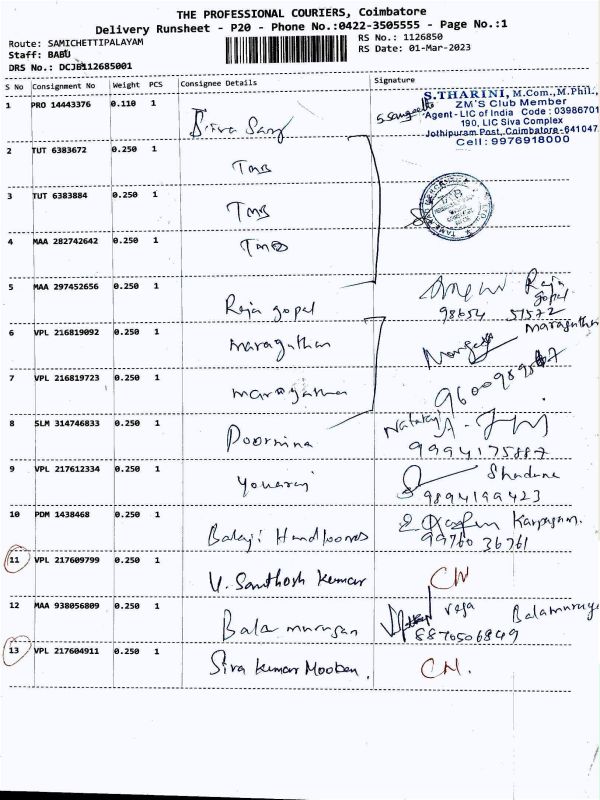 THE PROFESSIONAL COURIERS, Coimbatore
Delivery Runsheet - P20 - Phone No.:0422-3505555 - Page No.:1
Route: SAMICHETTIPALAYAM
RS No.: 1126850
Staff: BABU
RS Date: 01-Mar-2023
DRS No.: DCJB112685001
S No Consignment No Weight PCS Consignee Details Signature
S.THARINI, M.Com.,M.Phil.,
ZM'S Club Member
Agent - LIC of India Code : 03986701
190, LIC Siva Complex
Jothipuram Post, Coimbatore-641047
Cell: 9976918000
1 PRO 14443376 0.110 1
2 TUT 6383672 0.250 1 TMB
3 TUT 6383884 0.250 1 TMB
4 MAA 282742642 0.250 1 TMB
5 MAA 297452656 0.250 1 Raja gopal Raja
gopal
98654 51572
6 VPL 216819092 0.250 1 maragathan maragathan
7 VPL 216819723 0.250 1 maragathan
8 SLM 314746833 0.250 1 Poornima Nataraj
9994175887
9 VPL 217612334 0.250 1 Yovaraj
9894199423
10 PDM 1438468 0.250 1 Balaji Handlooms Karpagam.
99760 36761
11 VPL 217609799 0.250 1 V. Santhosh kumar CN
12 MAA 938056809 0.250 1 Bala murugan Balamuruga
8870506849
13 VPL 217604911 0.250 1 Siva kumar Mooken. CN.